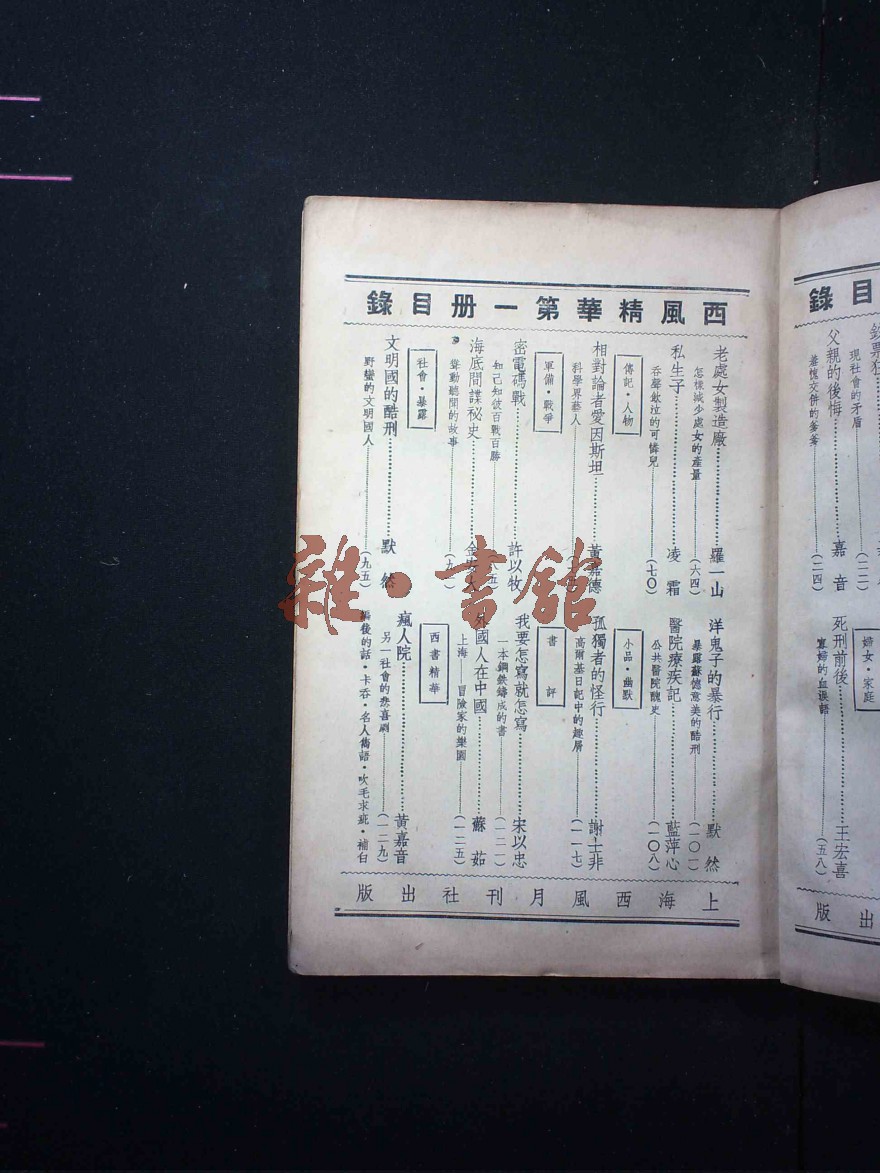 西風精華第一册目錄
老處女製造廠 羅一山
怎樣減少處女的產量 (六四)
私生子 凌霜
吞聲飲泣的可憐兒 (七〇)
傳記・人物
相對論者愛因斯坦 黃嘉德
科學界藝人
軍備・戰爭
密電碼戰 許以牧
知己知彼百戰百勝
海底間諜秘史 金安人
聳動聽聞的故事
社會・暴露
文明國的酷刑 默然
野蠻的文明國人 (九五)
洋鬼子的暴行 默然
暴露蘇德意美的酷刑 (一〇一)
醫院療疾記 藍萍心
公共醫院醜史 (一〇八)
小品・幽默
孤獨者的怪行 謝士非
高爾基日記中的趣屑 (一一七)
書評
我要怎寫就怎寫 宋以忠
一本鋼鉄鑄成的書 (一二一)
外國人在中國 蘇茹
上海——冒險家的樂園 (一二五)
西書精華
瘋人院 黃嘉音
另一社會的悲喜劇 (一二九)
編後的話・卡吞・名人雋語・吹毛求疵・補白
上海西風月刊社出版
目錄
現社會的矛盾 (二二)
父親的後悔 嘉音
羞愧交併的爹爹 (二四)
婦女・家庭
死刑前後 王宏喜
寡婦的血淚語 (五八)
出版
雜・書館